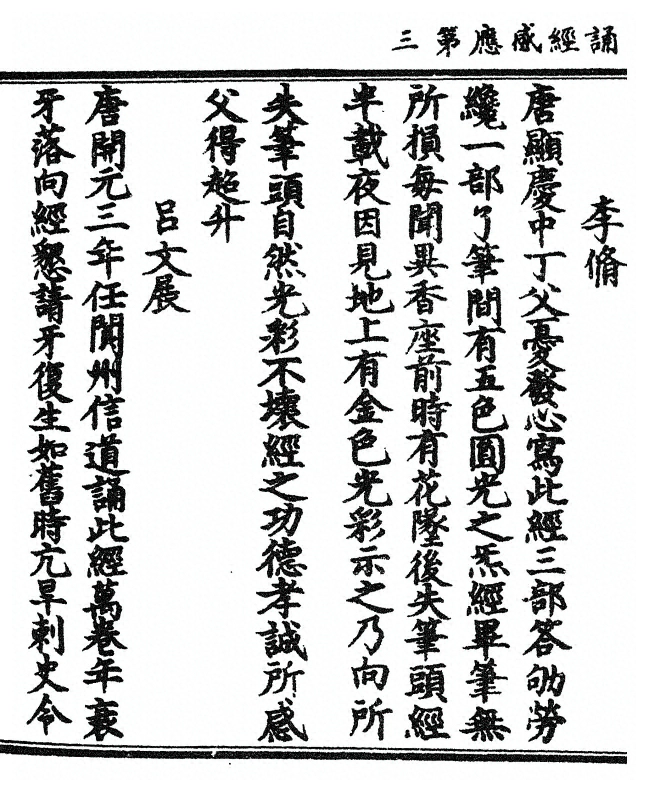 誦經感應第三
李脩
唐顯慶中丁父憂發心寫此經三部答劬勞
纔一部了筆間有五色圓光之炁經畢筆無
所損每聞異香座前時有花墜後失筆頭經
半載夜因見地上有金色光彩示之乃向所
失筆頭自然光彩不壞經之功德孝誠所感
父得超升
呂文展
唐開元三年任閬州信道誦此經萬卷年衰
牙落向經懇請牙復生如舊時亢旱刺史令